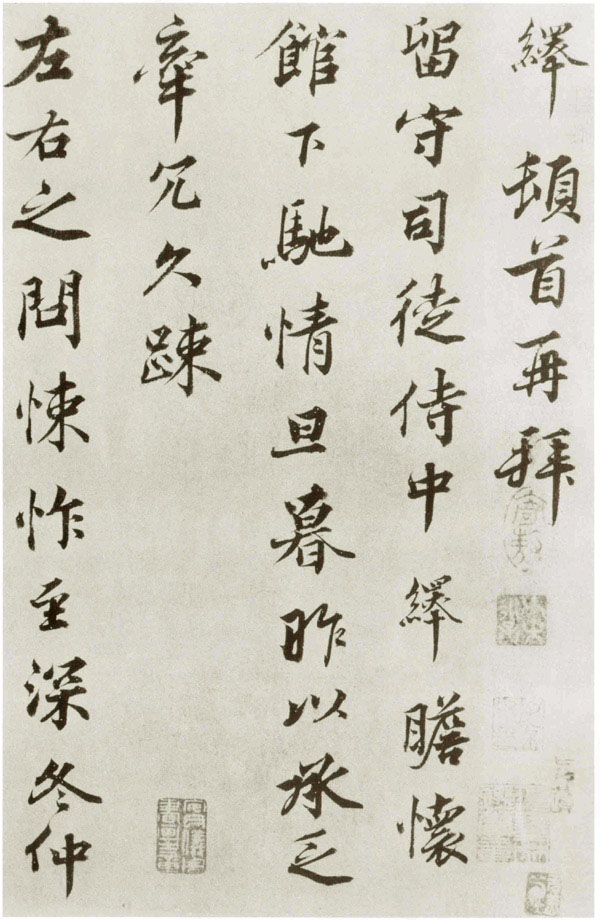 繹頓首再拜
留守司徒侍中繹瞻懷
館下馳情旦暮昨以承乏
牽冗久踈
左右之問悚怍至深冬仲